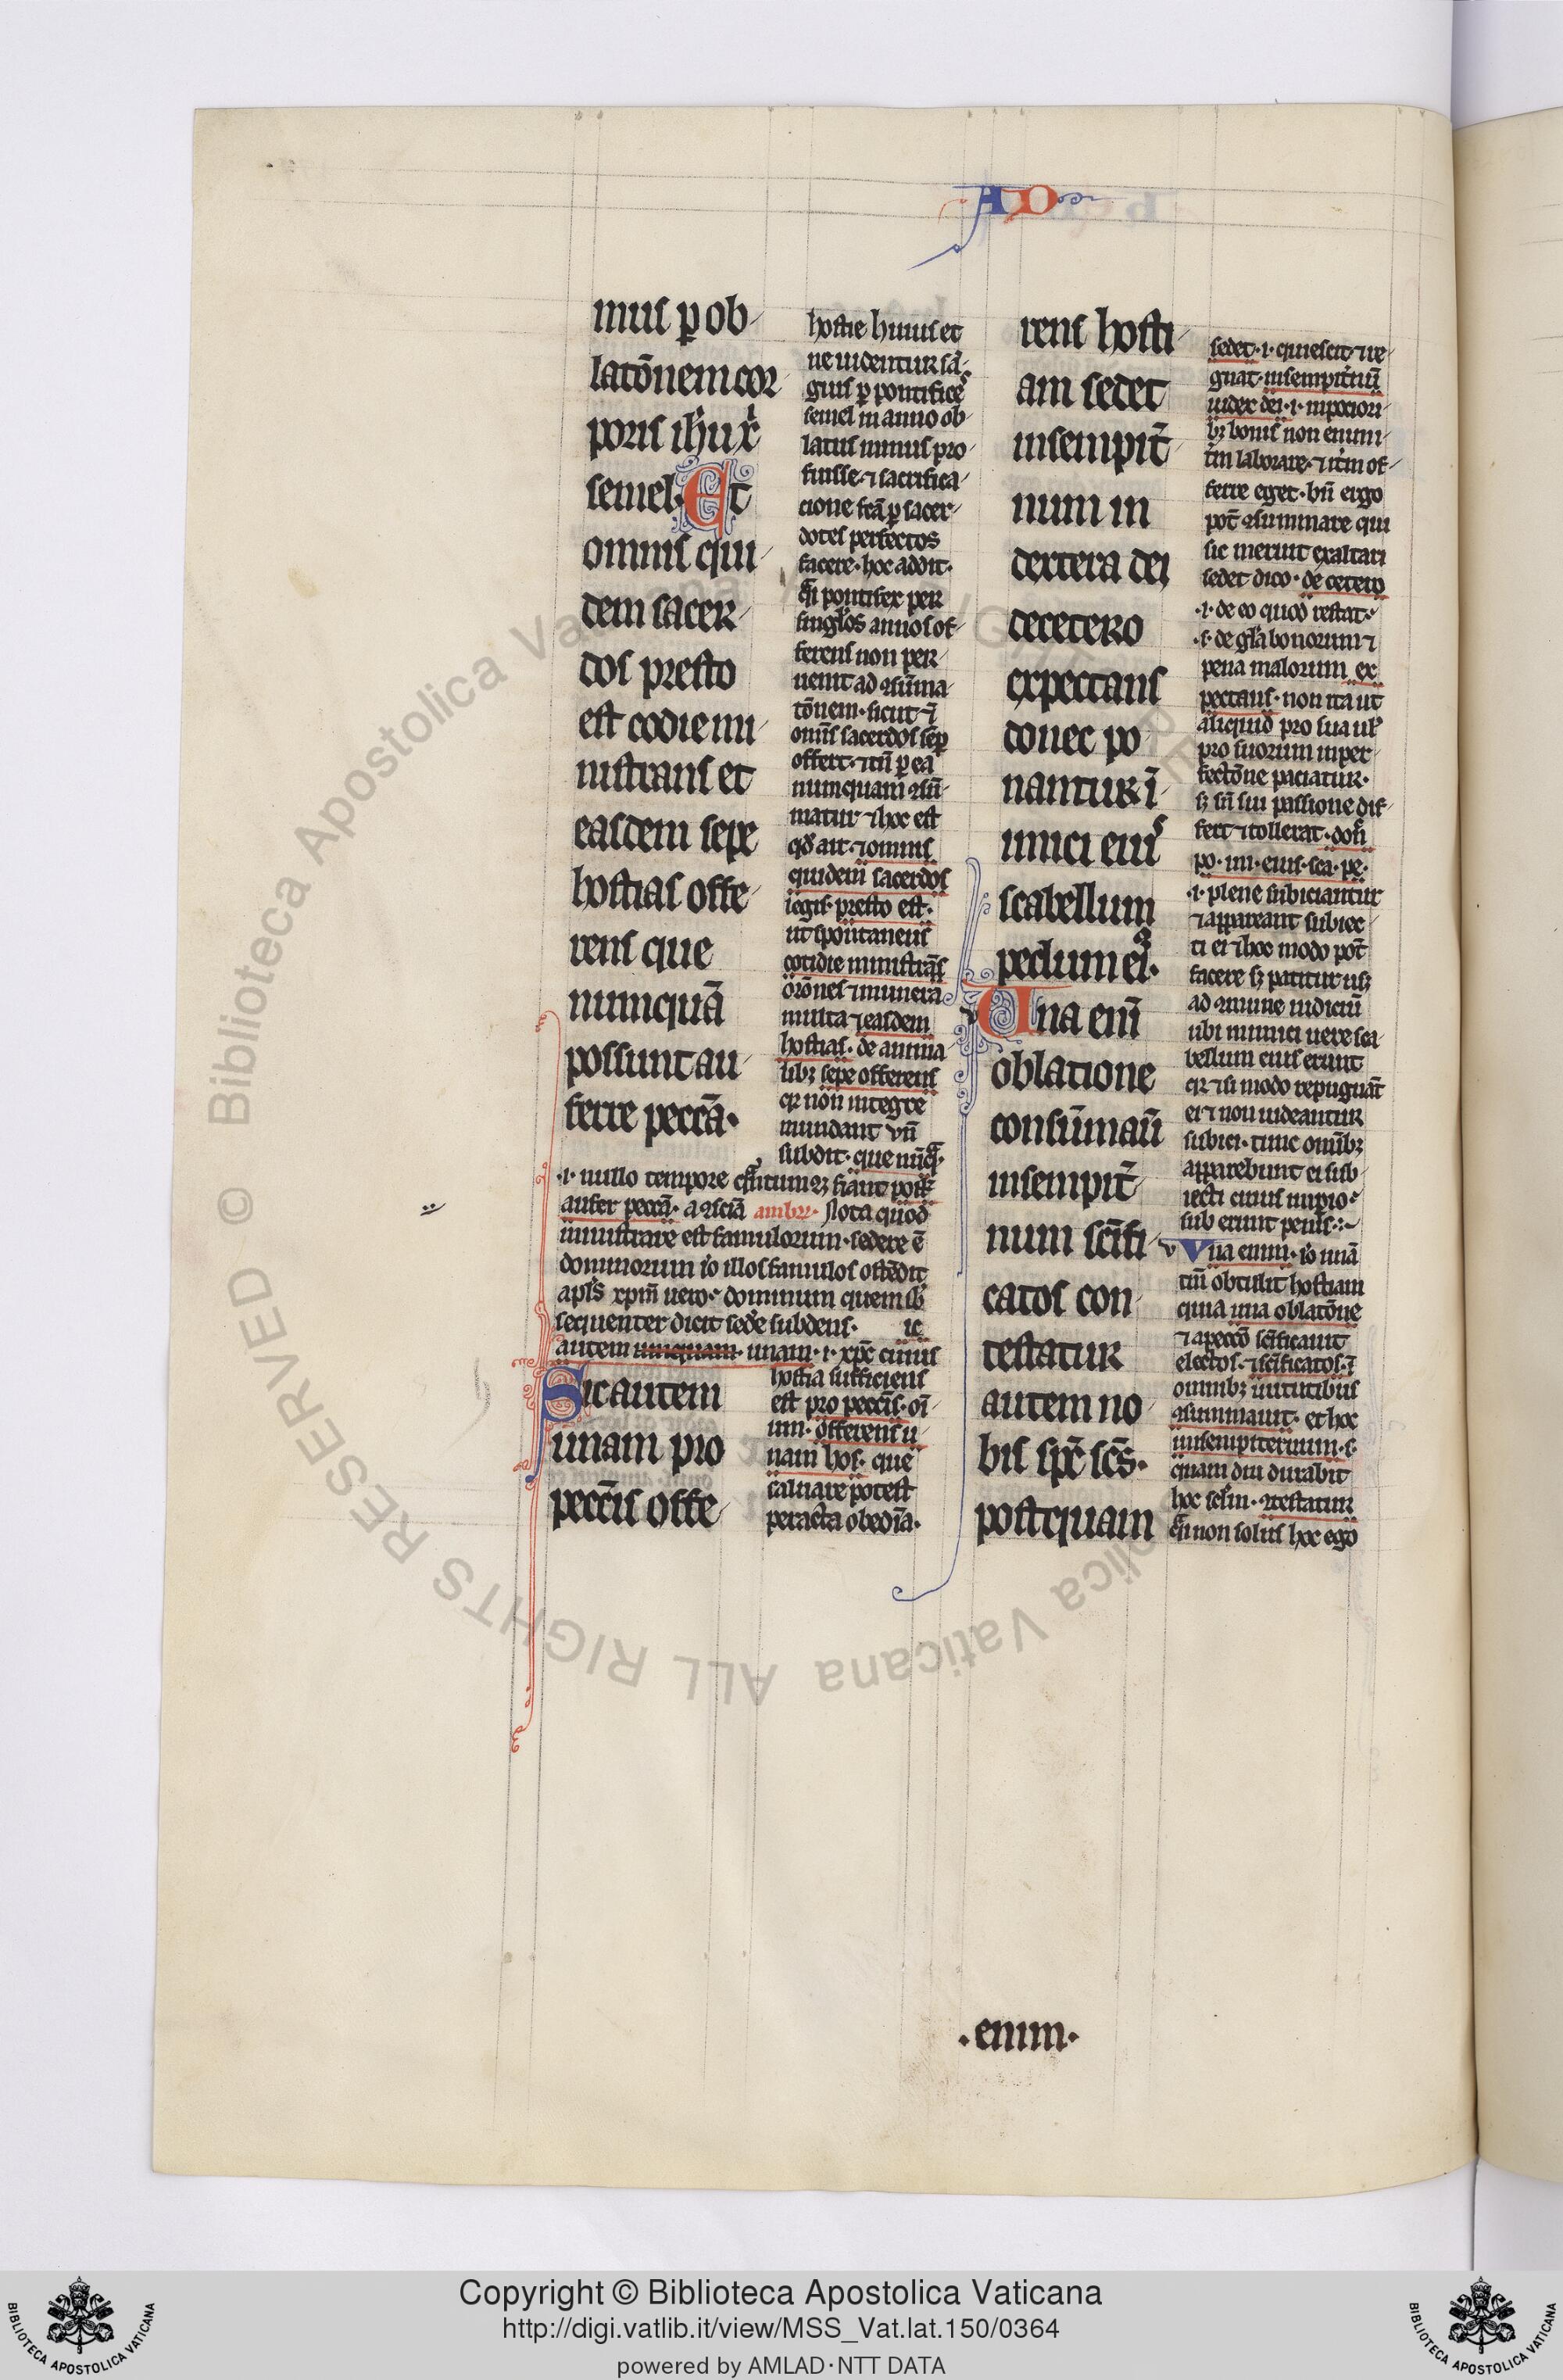 AD
mus p̱ ob
latōnem cor
poris ih̄u xi
semel. Et
omnis qui
dem sacer
dos presto
est codie mi
nistrans et
easdem sepe
hostias offe
rens que
numquā
possunt au
ferre peccā.
hostie huius et
ne uidentur sā
guis p̱ pontificē
semel in anno ob
latus minus pro
fuisse ⁊ sacrifica
cione fcā p̱ sacer
dotes perfectos
facere. hoc addit.
pontifex per
singlos annos of
ferens non per
uenit ad ꝯsūma
tōnem. sicut ⁊
omīs sacerdos sēp
offert. ⁊ tn̄ p̱ ea
numquam ꝯsū
matur ⁊ hoc est
qd̄ ait. ⁊ omnis
quidem sacerdos
legis. presto est.
ut spontaneus
cotidie ministrās
orōnes ⁊ munera
multa ⁊ easdem
hostias. de anima
libꝫ sepe offerens
qꝛ non integre
mundant vn̄
subdit. que nūq̄.
.i. nullo tempore
aufer peccā. a ꝯsciā ambr. Nota quod
ministrare est famulorum. sedere ē
dominorum io illos famulos ostēdit
apls̄ xpm̄ uero dominum quem
sequenter dicit sedē subdens. ic
autem unam. i. xpc̄ cuius
hostia sufficiens
est pro peccīs. oī
um. offerens u
nam hos. que
saluare potest
peracta obediā.
Sic autem
unam pro
peccīs offe
rens hosti
am sedet
insempit̄
num in
dextera dei
decetero
expectans
donec po
nantur ī
imici eius
scabellum
pedum ei.
Una enī
oblatione
consūmaū
insempit̄
num scīfi
catos con
testatur
autem no
bis spc̄ scs̄.
postquam
sedet. i. quiescit ⁊ re
gnat. insempitnū
index dei. i. inpociori
bꝫ bonis non enim i
tm̄ laborare. ⁊ itm̄ of
ferre eget. bn̄ ergo
pot̄ ꝯsummare qui
sic meruit exaltari
sedet dico. de cetero
.i. de eo quod restat.
.s. de glā bonorum ⁊
pena malorum ex
pectans. non ita ut
aliquid pro sua ul
pro suorum inper
fectōne paciatur.
sꝫ sn̄ sui passione dif
fert ⁊ tollerat. don̄
po. ini. eius. sca. pe.
.i. plene subiciantur
⁊ appareant subiec
ti ei ⁊ hoc modo pot̄
facere sꝫ patitur usꝫ
ad ꝯmune iudiciū
ubi inimici uere sca
bellum eius erunt
qꝛ ⁊ si modo repugnāt
ei ⁊ non uideantur
subici. tunc omībꝫ
apparebunt ei sub
iecti cuius inpio
sub erunt penis.
Vna enim. io unā
tm̄ obtulit hostiam
quia una oblatōne
⁊ a peccō scīficauit
electos. ⁊ scīficatos. ī
omnibꝫ uirtutibus
ꝯsummauit. et hoc
insempiternum. s.
quam diu durabit
hoc sclm̄. ꝯtestatur
non solus hoc ego
.enim.
Copyright © Biblioteca Apostolica Vaticana
http://digi.vatlib.it/view/MSS_Vat.lat.150/0364
powered by AMLAD·NTT DATA